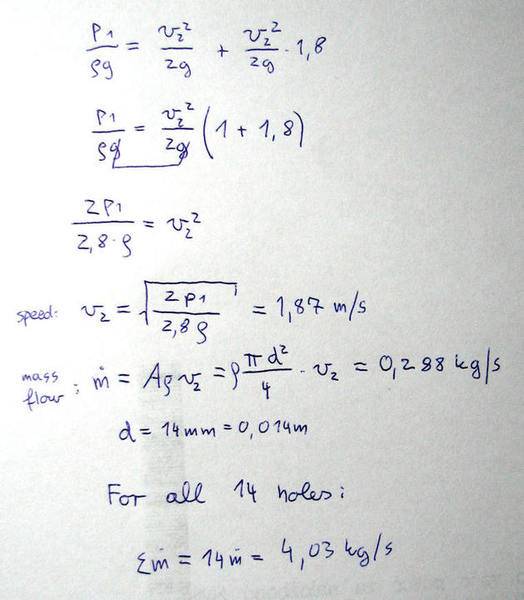 p₁/ρg = v₂²/2g + v₂²/2g · 1,8
p₁/ρg = v₂²/2g (1 + 1,8)
2p₁/2,8·ρ = v₂²
speed: v₂ = √(2p₁/2,8ρ) = 1,87 m/s
mass flow: ṁ = Aρv₂ = ρ πd²/4 · v₂ = 0,288 kg/s
d = 14mm = 0,014m
For all 14 holes:
Σṁ = 14ṁ = 4,03 kg/s